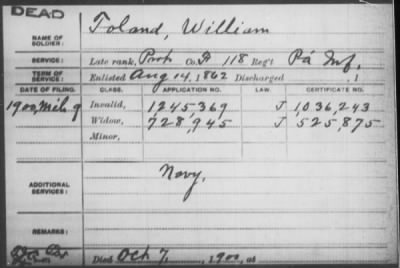 DEAD
NAME OF SOLDIER: Toland, William
SERVICE: Late rank, Prvt Co. F 118 Reg't Pa Inf.
TERM OF SERVICE: Enlisted Aug 14, 1862 Discharged , 1
DATE OF FILING. CLASS. APPLICATION NO. LAW. CERTIFICATE NO.
Invalid, 1245,369 J 1,036,243
Widow, 728,945 J 525,875
Minor,
ADDITIONAL SERVICES: Navy.
REMARKS:
Died Oct 7, 1900, at